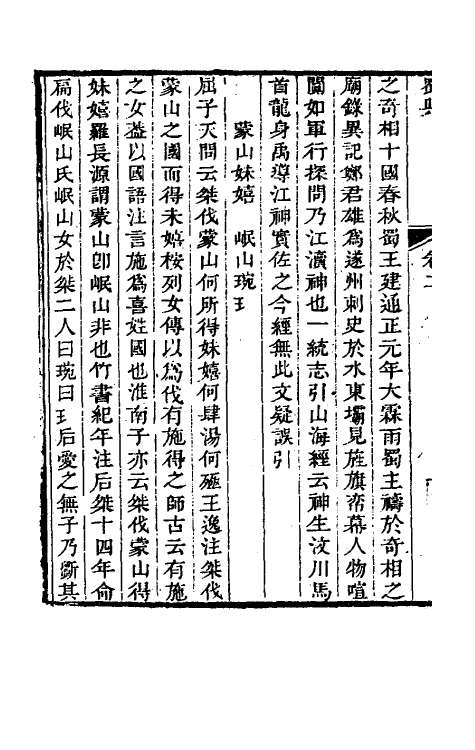 蜀典
卷二
之奇相十國春秋蜀王建通正元年大霖雨蜀主禱於奇相之
廟錄異記鄭君雄爲遂州刺史於水東壩見旌旗帟幕人物喧
闐如軍行探問乃江瀆神也一統志引山海經云神生汶川馬
首龍身禹導江神實佐之今經無此文疑誤引
蒙山妹嬉　岷山琬玉
屈子天問云桀伐蒙山何所得妹嬉何肆湯何殛王逸注桀伐
蒙山之國而得末嬉桉列女傳以爲伐有施得之師古云有施
之女葢以國語注言施爲喜姓國也淮南子亦云桀伐蒙山得
妹嬉羅長源謂蒙山卽岷山非也竹書紀年注后桀十四年命
扁伐岷山氏岷山女於桀二人曰琬曰玉后愛之無子乃斲其